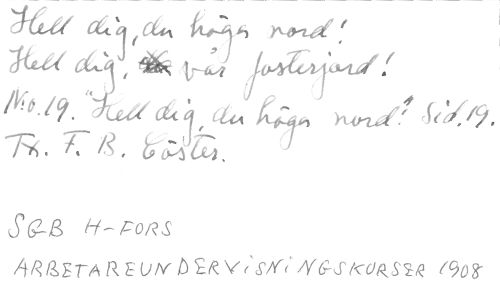 Hell dig, du höga nord!
Hell dig, vår fosterjord!
No. 19. "Hell dig, du höga nord!" Sid. 19.
Tx. F. B. Cöster.
SGB H-FORS
ARBETAREUNDERVISNINGSKURSER 1908